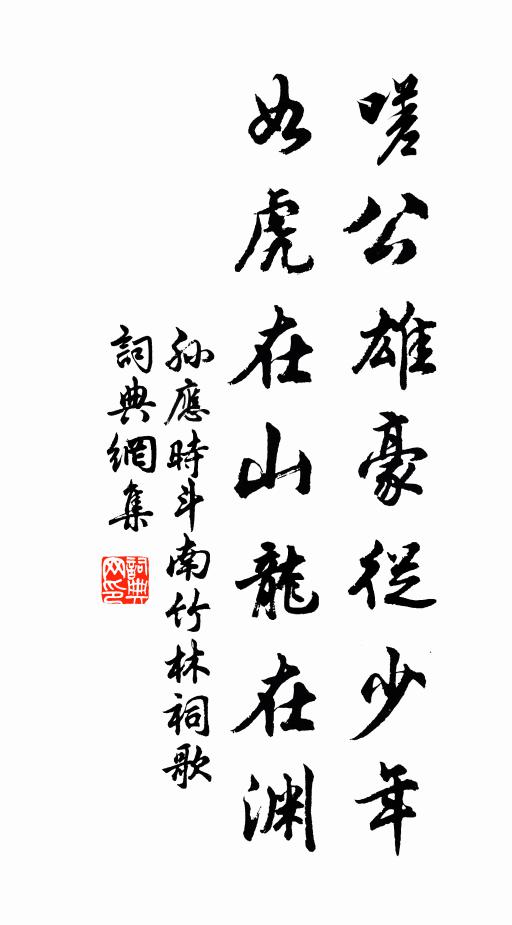 嗟公雄豪從少年
如虎在山龍在淵
孫應時斗南竹林祠歌
詞典網集
詞典网印